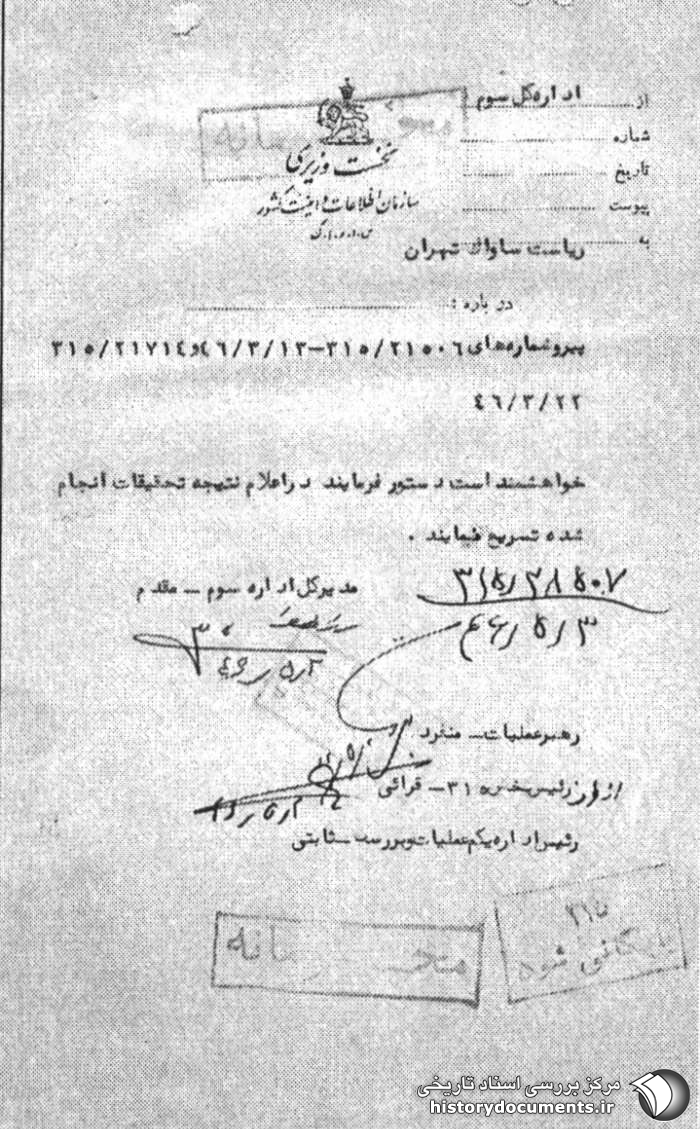 از اداره کل سوم
شماره
تاریخ
پیوست
به ریاست ساواک تهران
نخست وزیری
سازمان اطلاعات و امنیت کشور
س.ا.و.ا.ک
در باره :
پیرو شماره‌های ۳۱۵/۲۱۵۰۶-۴۶/۳/۱۳ و ۳۱۵/۲۱۷۱۴
۴۶/۳/۲۲
خواهشمند است دستور فرمایند در اعلام نتیجه تحقیقات انجام
شده تسریع نمایند .
مدیرکل اداره سوم - مقدم
۳۱۵/۲۸۵۰۷
۴۶/۵/۳
رهبر عملیات - منفرد
رئیس بخش ۳۱ - قرائی
رئیس اداره یکم عملیات و بررسی - ثابتی
محرمانه
۳۱۵
بایگانی شود
مرکز بررسی اسناد تاریخی
historydocuments.ir